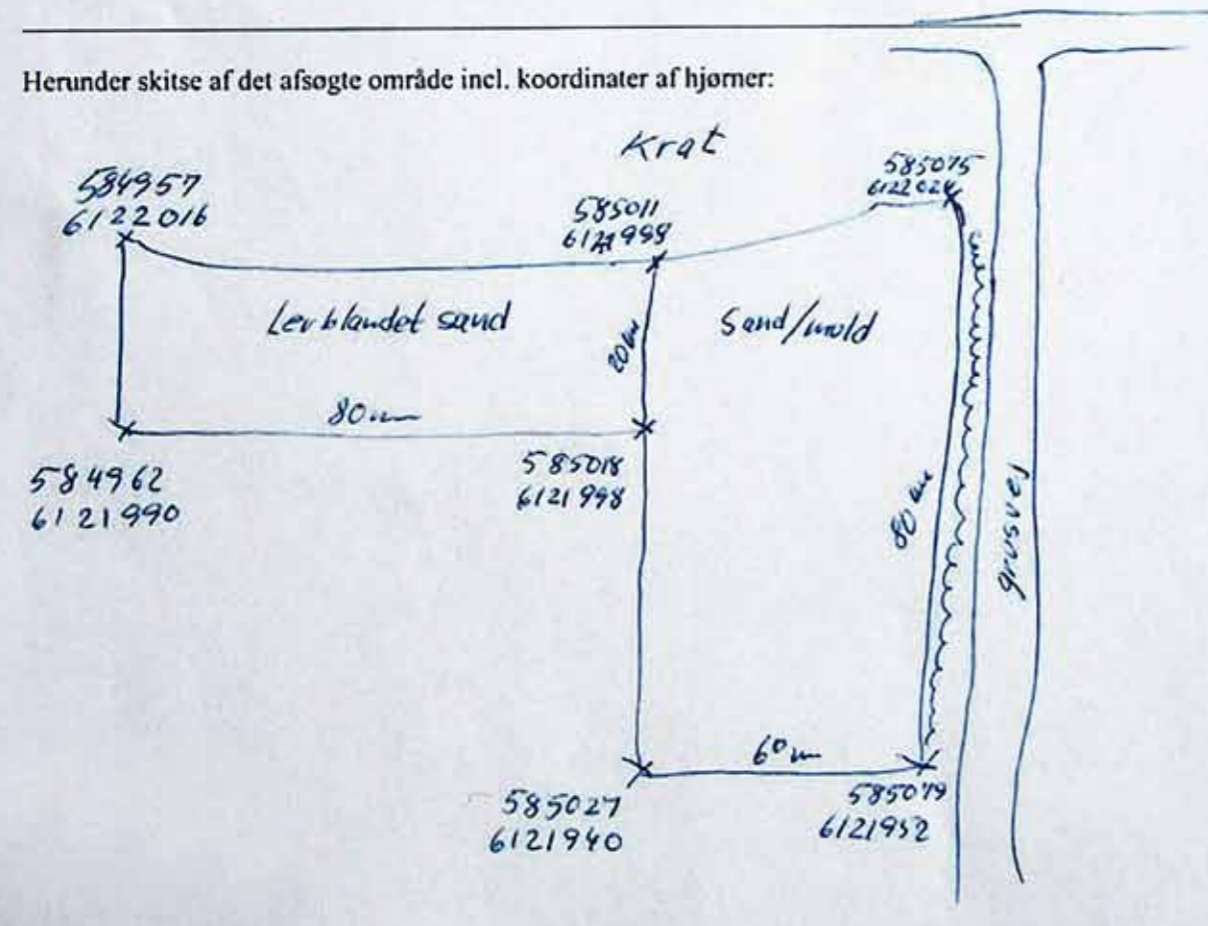 Herunder skitse af det afsøgte område incl. koordinater af hjørner:
Krat
584957
6122016
585011
585075
Lerblandet sand
Sand/muld
20 m
80 m
584962
6121990
585018
6121998
80 m
grusvej
60 m
585027
6121940
585079
6121952